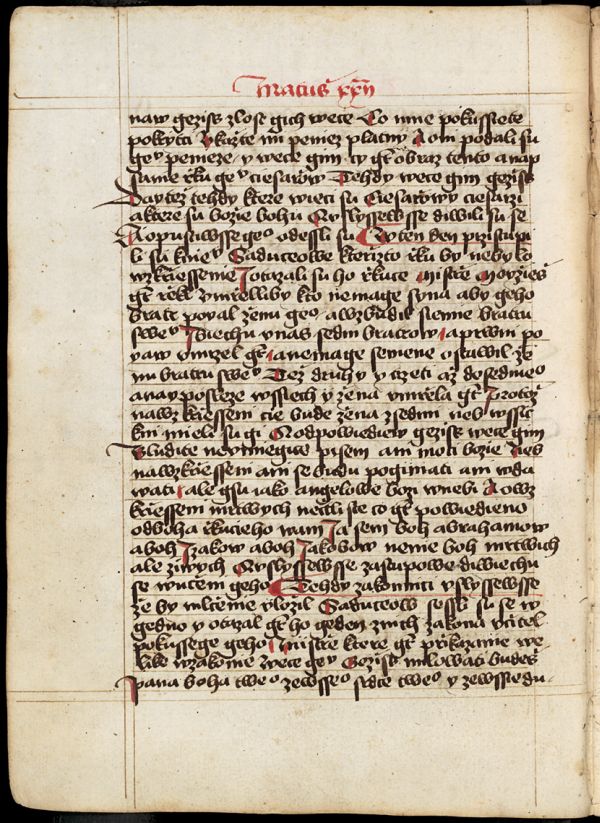 Matus xxii
naw gezis zlost gich wece Co mne pokussiete
pokrytci Vkazte mi peniez platny A oni podali su
geᵒ penieze / y wece gim cy gt obraz tento a nap
sanie rku geᵒ ciesarow Tehdy wece gim gezis
Daytez tehdy ktere wieci su Ciesarowy ciesarzi
a ktere su bozie bohu Vslyssewsse diwili su se
A opustiwsse geᵒ odessli su Ten den przistupi
li su knieᵘ Saduceowe kterizto rku by nebylo
wzkriessenie J otazali su ho rkuce Mistre Moyzies
gt rekl Vmrelliby kto nemage syna aby geho
bratr poyal zenu geᵒ a wzbudil siemie bratru
sweᵘ J biechu v nas sedm bratrow / a prwni po
yaw vmrzel gt / a nemage semene ostawil ze
nu bratru sweᵘ Tez druhy y trzeti az do sedmeᵒ
a nayposleze wssech y zena vmrela gt Protoz
na wzkriesseni cie bude zena z sedmi neb wssic
kni mieli su gi Odpowiediew gezis wece gim
Bludite nevmiegice pisem ani moci bozie Neb
na wzkriesseni ani se budu pogimati ani wda
wati / ale gsu iako angelowe bozi w nebi A o wz
kriesseni mrtwych nectli ste co gt powiedieno
od boha rkucieho wam Ja sem boh abrahamow
a boh Izakow a boh Jakobow nenie boh mrtwich
ale ziwych Vslyssewsse zastupowe diwiechu
se w uceni geho Tehdy zakonnici vslyssewsse
ze by mlcenie vlozil Saduceow sessli su se w
gedno y otazal gt ho geden z nich zakona vcitel
pokussege geho Mistre ktere gt przikazanie we
like w zakonie Wece geᵘ Gezis milowati budes
pana boha tweᵒ ze wsseᵒ srdce tweᵒ y ze wssie du-